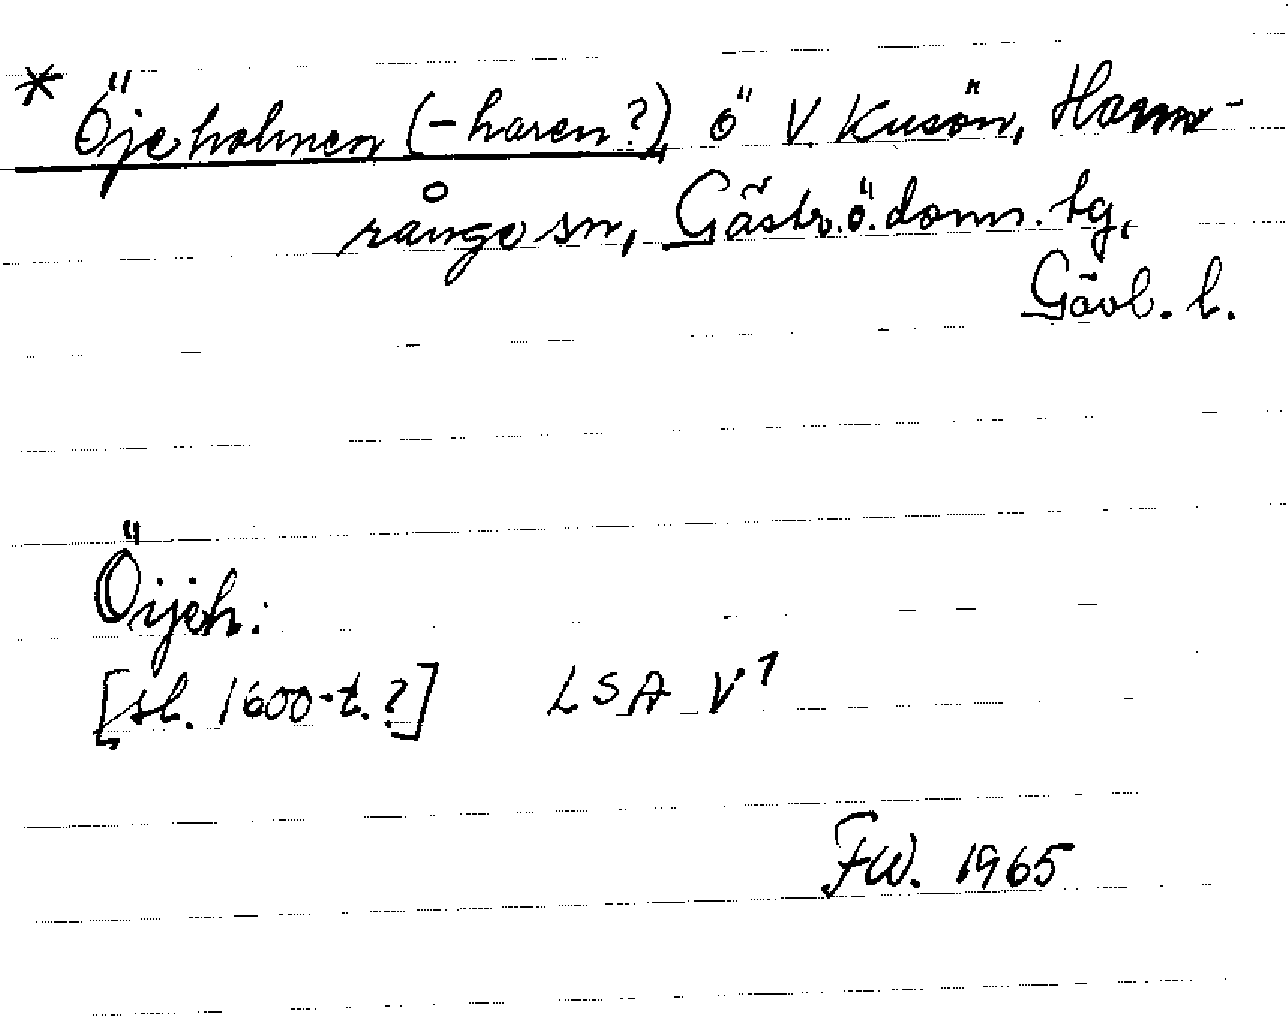 * Öjeholmen (-haren?), ö V. Kusön, Hamr-
rånge sn, Gästr. ö. doms. tg,
Gävl. l.
Öijeh:
[sl. 1600-t.?] LSA V¹
FW. 1965